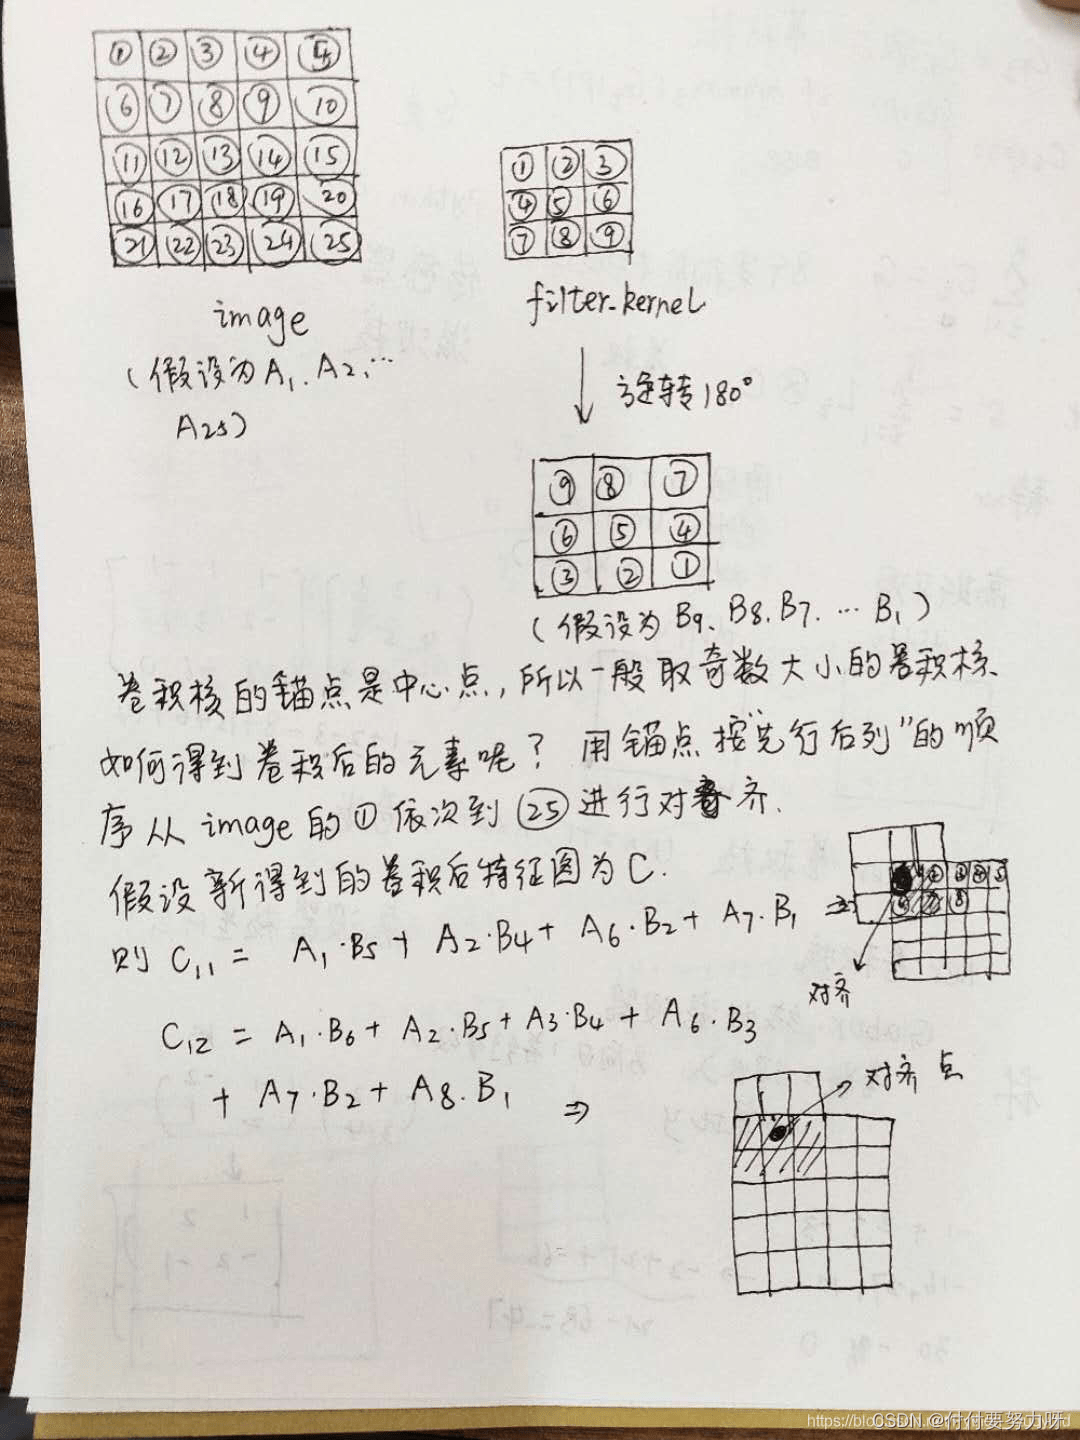 ① ② ③ ④ ⑤
⑥ ⑦ ⑧ ⑨ ⑩
⑪ ⑫ ⑬ ⑭ ⑮
⑯ ⑰ ⑱ ⑲ ⑳
㉑ ㉒ ㉓ ㉔ ㉕
image
(假设为A₁、A₂,…
A₂₅)
① ② ③
④ ⑤ ⑥
⑦ ⑧ ⑨
filter-kernel
旋转180°
⑨ ⑧ ⑦
⑥ ⑤ ④
③ ② ①
(假设为B₉、B₈、B₇、… B₁)
卷积核的锚点是中心点,所以一般取奇数大小的卷积核、
如何得到卷积后的元素呢? 用锚点按"先行后列"的顺
序从image的①依次到㉕进行对齐.
假设新得到的卷积后特征图为C.
则 C₁₁ = A₁·B₅+ A₂·B₄+ A₆·B₂+ A₇·B₁ ⇒
② ③ ④ ⑤
⑧
对齐
C₁₂ = A₁·B₆+ A₂·B₅+A₃·B₄+ A₆·B₃
+ A₇·B₂+ A₈.B₁ ⇒
对齐点
CSDN @付付要努力呀